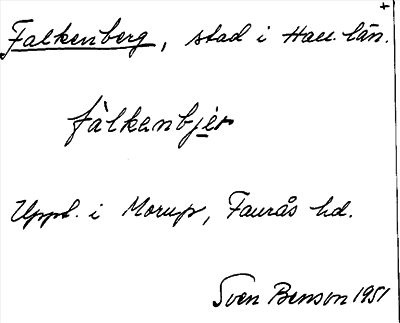 +
Falkenberg, stad i Hall. län.
fàlkenbjèr
Uppt. i Morup, Faurås hd.
Sven Benson 1951